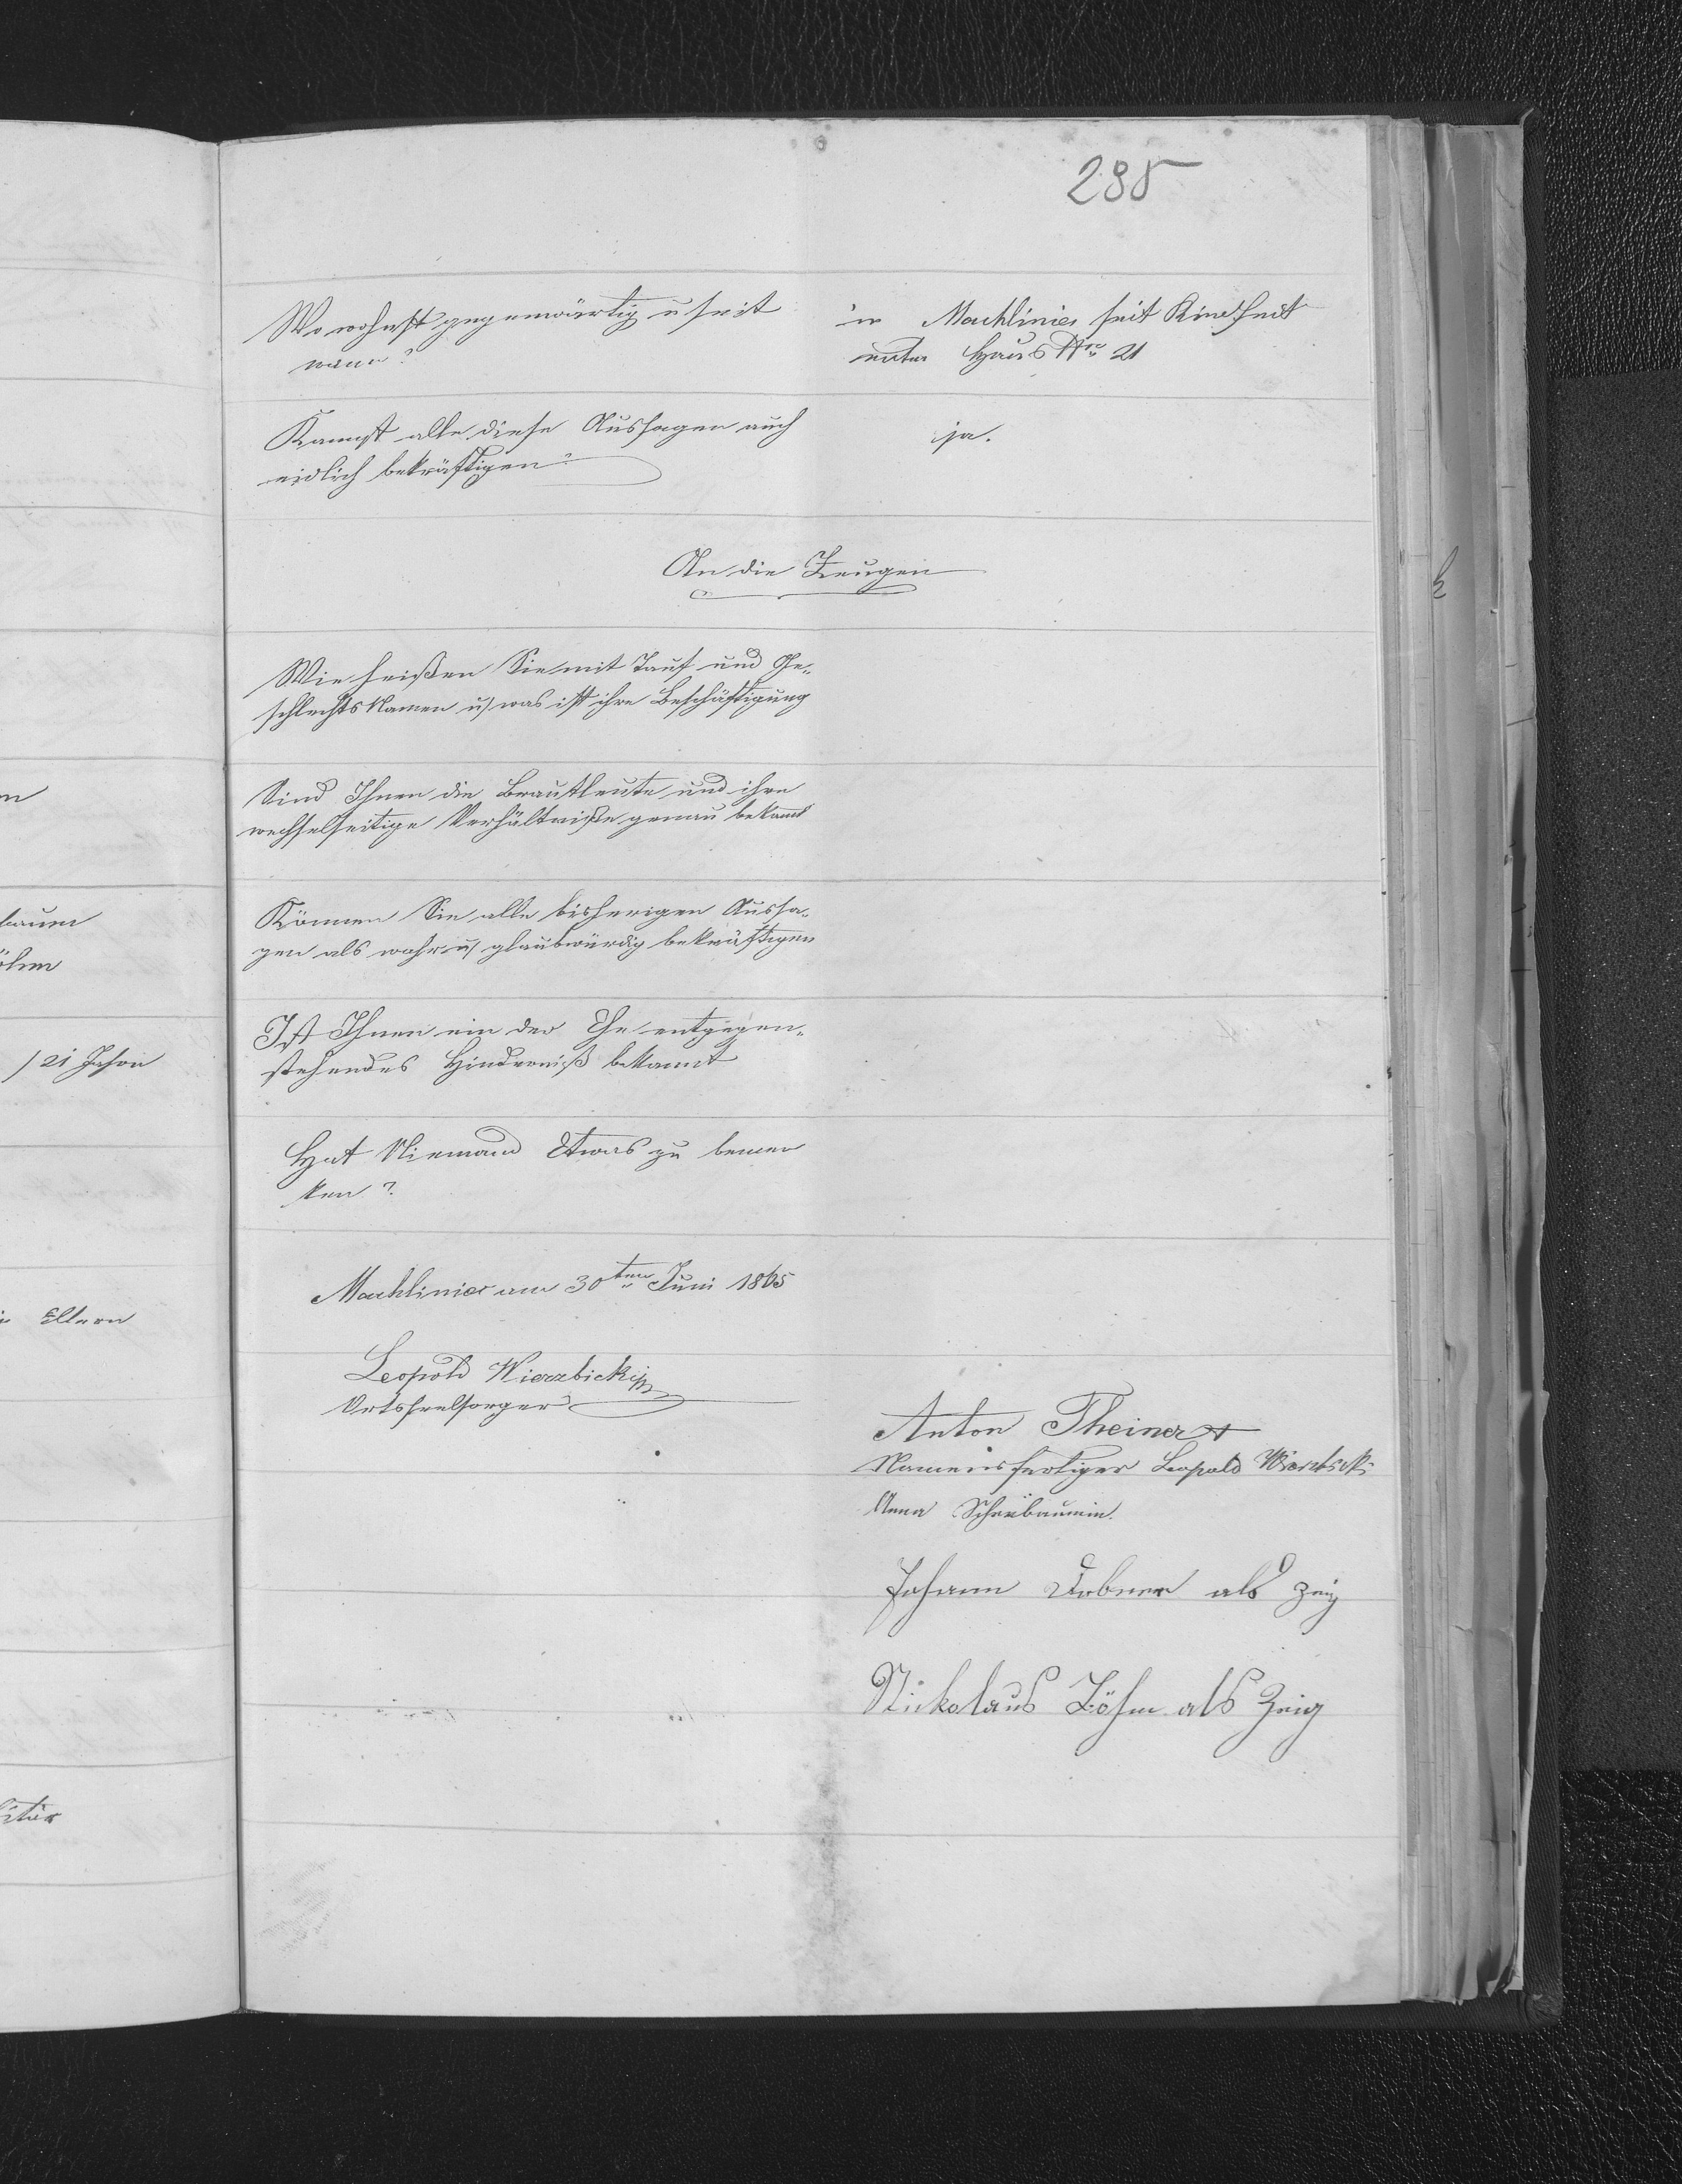 285
Wo wohnst gegenwärtig u seit
wann?
in Machliniec seit Kindheit
unter Haus Nro 21
Kannst alle diese Aussagen auch
eidlich bekräftigen?
ja.
An die Zeugen
Wie heißen Sie mit Tauf und Ge-
schlechts Namen u was ist ihre Beschäftigung
Sind Ihnen die Brautleute und ihre
wechselseitige Verhältniße genau bekannt
Können Sie alle bisherigen Aussa-
gen als wahr u glaubwürdig bekräftigen
Ist Ihnen ein der Ehe entgegen-
stehendes Hinderniß bekannt
Hat Niemand Etwas zu bemer
ken?
Machliniec am 30ten Juni 1865
Leopold Wierzbicki
Ortsseelsorger
Anton Theiner +
Namensfertiger Leopold Wierzbicki
Anna Schreibaumin.
Johann als Zeig
Nickolaus Böhm als Zeig
21 Jahre
Eltern